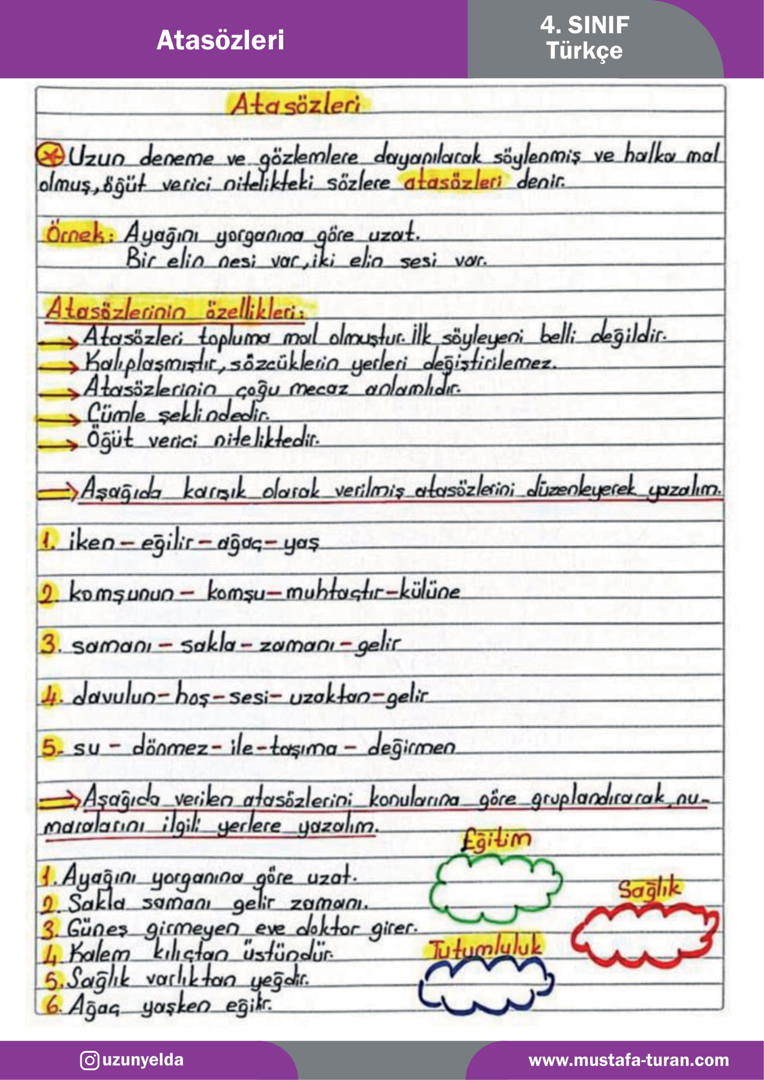 Atasözleri
4. SINIF
Türkçe
Atasözleri
Uzun deneme ve gözlemlere dayanılarak söylenmiş ve halka mal
olmuş, öğüt verici nitelikteki sözlere atasözleri denir.
Örnek: Ayağını yorganına göre uzat.
Bir elin nesi var, iki elin sesi var.
Atasözlerinin özellikleri:
→ Atasözleri topluma mal olmuştur. İlk söyleyeni belli değildir.
→ Kalıplaşmıştır, sözcüklerin yerleri değiştirilemez.
→ Atasözlerinin çoğu mecaz anlamlıdır.
→ Cümle şeklindedir.
→ Öğüt verici niteliktedir.
⇒ Aşağıda karışık olarak verilmiş atasözlerini düzenleyerek yazalım.
1. iken - eğilir - ağaç - yaş
2. komşunun - komşu - muhtaçtır - külüne
3. samanı - sakla - zamanı - gelir
4. davulun - hoş - sesi - uzaktan - gelir
5- su - dönmez - ile - taşıma - değirmen
⇒ Aşağıda verilen atasözlerini konularına göre gruplandırarak nu-
maralarını ilgili yerlere yazalım.
Eğitim
1. Ayağını yorganına göre uzat.
Sağlık
2. Sakla samanı gelir zamanı.
3. Güneş girmeyen eve doktor girer.
4. Kalem kılıçtan üstündür.
Tutumluluk
5. Sağlık varlıktan yeğdir.
6. Ağaç yaşken eğilir.
uzunyelda
www.mustafa-turan.com